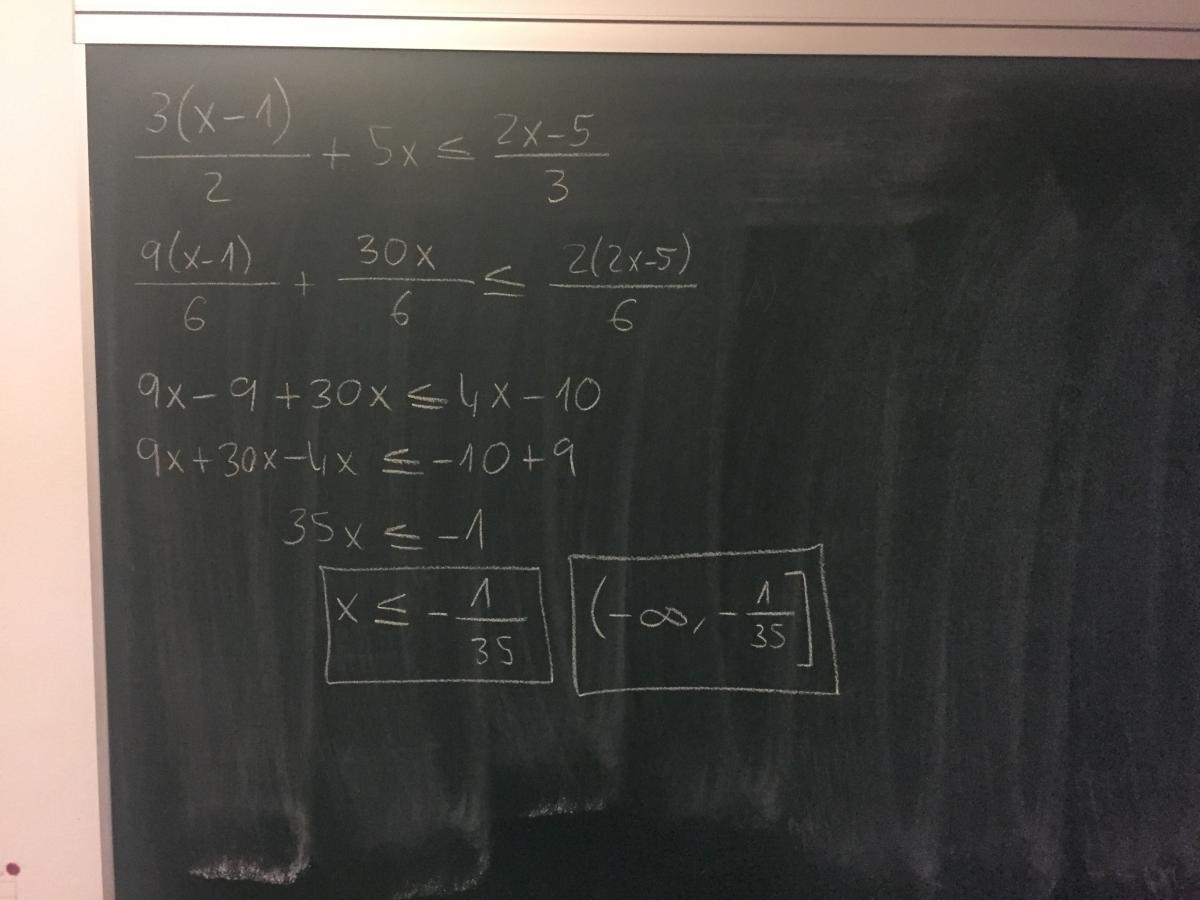 3(x-1)/2 + 5x ≤ (2x-5)/3
9(x-1)/6 + 30x/6 ≤ 2(2x-5)/6
9x-9+30x ≤ 4x-10
9x+30x-4x ≤ -10+9
35x ≤ -1
x ≤ -1/35 (-∞, -1/35]